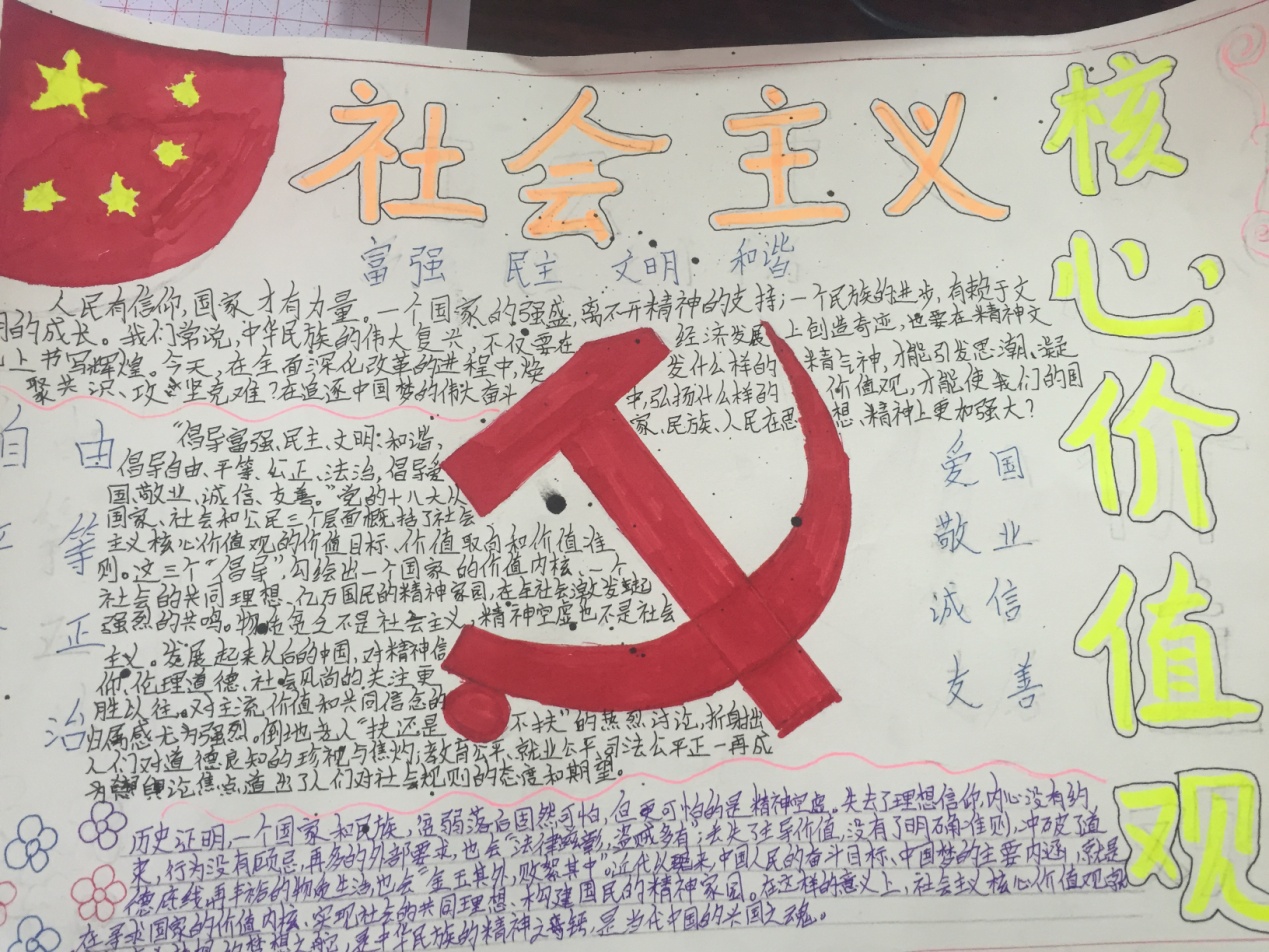 社会主义
核心价值观
富强 民主 文明 和谐
人民有信仰,国家才有力量。一个国家的强盛,离不开精神的支持;一个民族的进步,有赖于文
明的成长。我们常说,中华民族的伟大复兴,不仅要在 经济发展 上创造奇迹,也要在精神文
上书写辉煌。今天,在全面深化改革的进程中,焕 发什么样的 精气神,才能引发思潮、凝
聚共识、攻坚克难?在追逐中国梦的伟大奋斗 中,弘扬什么样的 价值观,才能使我们的国
家、民族、人民在思 想、精神上更加强大?
自由
等
正
治
“倡导富强、民主、文明、和谐,
倡导自由、平等、公正、法治,倡导爱
国、敬业、诚信、友善。”党的十八大从
国家、社会和公民三个层面概括了社会
主义核心价值观的价值目标、价值取向和价值准
则。这三个“倡导”,勾绘出一个国家的价值内核、一个
社会的共同理想、亿万国民的精神家园,在全社会激发起
强烈的共鸣。物质贫乏不是社会主义,精神空虚也不是社会
主义。发展起来以后的中国,对精神信
仰、伦理道德、社会风尚的关注更
胜以往。对主流价值和共同信念的
归属感尤为强烈。倒地老人“扶还是 不扶”的热烈讨论,折射出
人们对道德良知的珍视与焦灼;教育公平、就业公平、司法公平正一再成
为舆论焦点,道出了人们对社会规则的态度和期望。
爱国
敬业
诚信
友善
历史证明,一个国家和民族,贫弱落后固然可怕,但更可怕的是精神空虚。失去了理想信仰,内心没有约
束,行为没有顾忌,再多的外部要求,也会“法律滋彰,盗贼多有”;丢失了主导价值,没有了明确准则,冲破了道
德底线,再丰裕的物质生活,也会“金玉其外,败絮其中”。近代以来中国人民的奋斗目标、中国梦的主要内涵,就是
在寻求国家的价值内核、实现社会的共同理想、构建国民的精神家园。在这样的意义上,社会主义核心价值观
的梦想之舵,是中华民族的精神之 ,是当代中国的兴国之魂。